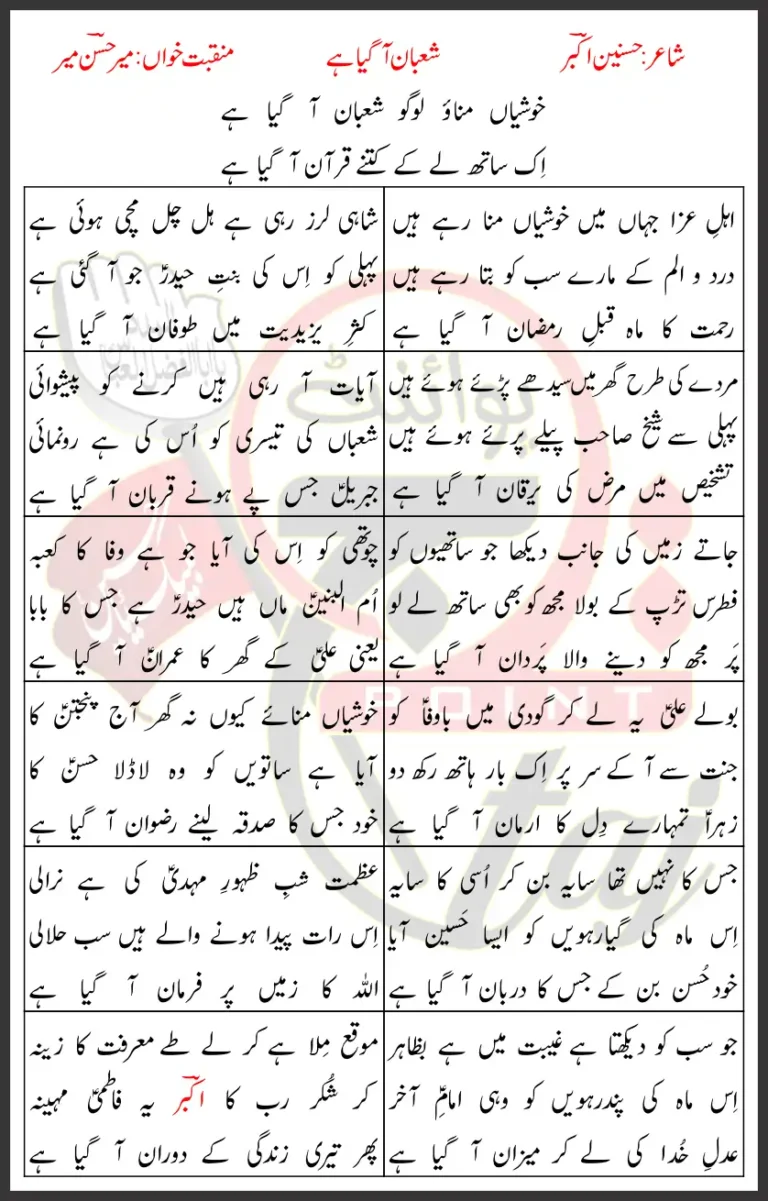 شاعر: حسنین اکبرؔ
شعبان آ گیا ہے
منقبت خواں: میر حسن میر
خوشیاں مناؤ لوگو شعبان آ گیا ہے
اِک ساتھ لے کے کتنے قرآن آ گیا ہے
اہلِ عزا جہاں میں خوشیاں منا رہے ہیں
درد و الم کے مارے سب کو بتا رہے ہیں
رحمت کا ماہ قبلِ رمضان آ گیا ہے
شاہی لرز رہی ہے ہل چل مچی ہوئی ہے
پہلی کو اِس کی بنتِ حیدرؑ جو آ گئی ہے
کثرِ یزیدیت میں طوفان آ گیا ہے
مردے کی طرح گھر میں سیدھے پڑئے ہوئے ہیں
پہلی سے شیخ صاحب پیلے پرئے ہوئے ہیں
تشخیص میں مرض کی یرقان آ گیا ہے
آیات آ رہی ہیں کرنے کو پیشوائی
شعباں کی تیسری کو اُس کی ہے رونمائی
جبریلؑ جس پے ہونے قربان آ گیا ہے
جاتے زمیں کی جانب دیکھا جو ساتھیوں کو
فطرس تڑپ کے بولا مجھ کو بھی ساتھ لے لو
پَر مجھ کو دینے والا پَردان آ گیا ہے
چوتھی کو اِس کی آیا جو ہے وفا کا کعبہ
اُم البنینؑ ماں ہیں حیدرؑ ہے جس کا بابا
یعنی علیؑ کے گھر کا عمرانؑ آ گیا ہے
بولے علیؑ یہ لے کر گودی میں باوفاؑ کو
جنت سے آ کے سر پر اِک بار ہاتھ رکھ دو
زہراؑ تمہارے دِل کا ارمان آ گیا ہے
خوشیاں منائے کیوں نہ گھر آج پنجتنؑ کا
آیا ہے ساتویں کو وہ لاڈلا حسنؑ کا
خود جس کا صدقہ لینے رضوان آ گیا ہے
جس کا نہیں تھا سایہ بن کر اُسی کا سایہ
اِس ماہ کی گیارہویں کو ایسا حَسین آیا
خود حُسن بن کے جس کا دربان آ گیا ہے
عظمت شبِ ظہورِ مہدیؑ کی ہے نرالی
اِس رات پیدا ہونے والے ہیں سب حلالی
اللہ کا زمیں پر فرمان آ گیا ہے
جو سب کو دیکھتا ہے غیبت میں ہے بظاہر
اِس ماہ کی پندرہویں کو وہی امامِؑ آخر
عدلِ خُدا کی لے کر میزان آ گیا ہے
موقع مِلا ہے کر لے طے معرفت کا زینہ
کر شُکر رب کا اکبرؔ یہ فاطمیؑ مہینہ
پھر تیری زندگی کے دوران آ گیا ہے
پوائنٹ
POINT
taj